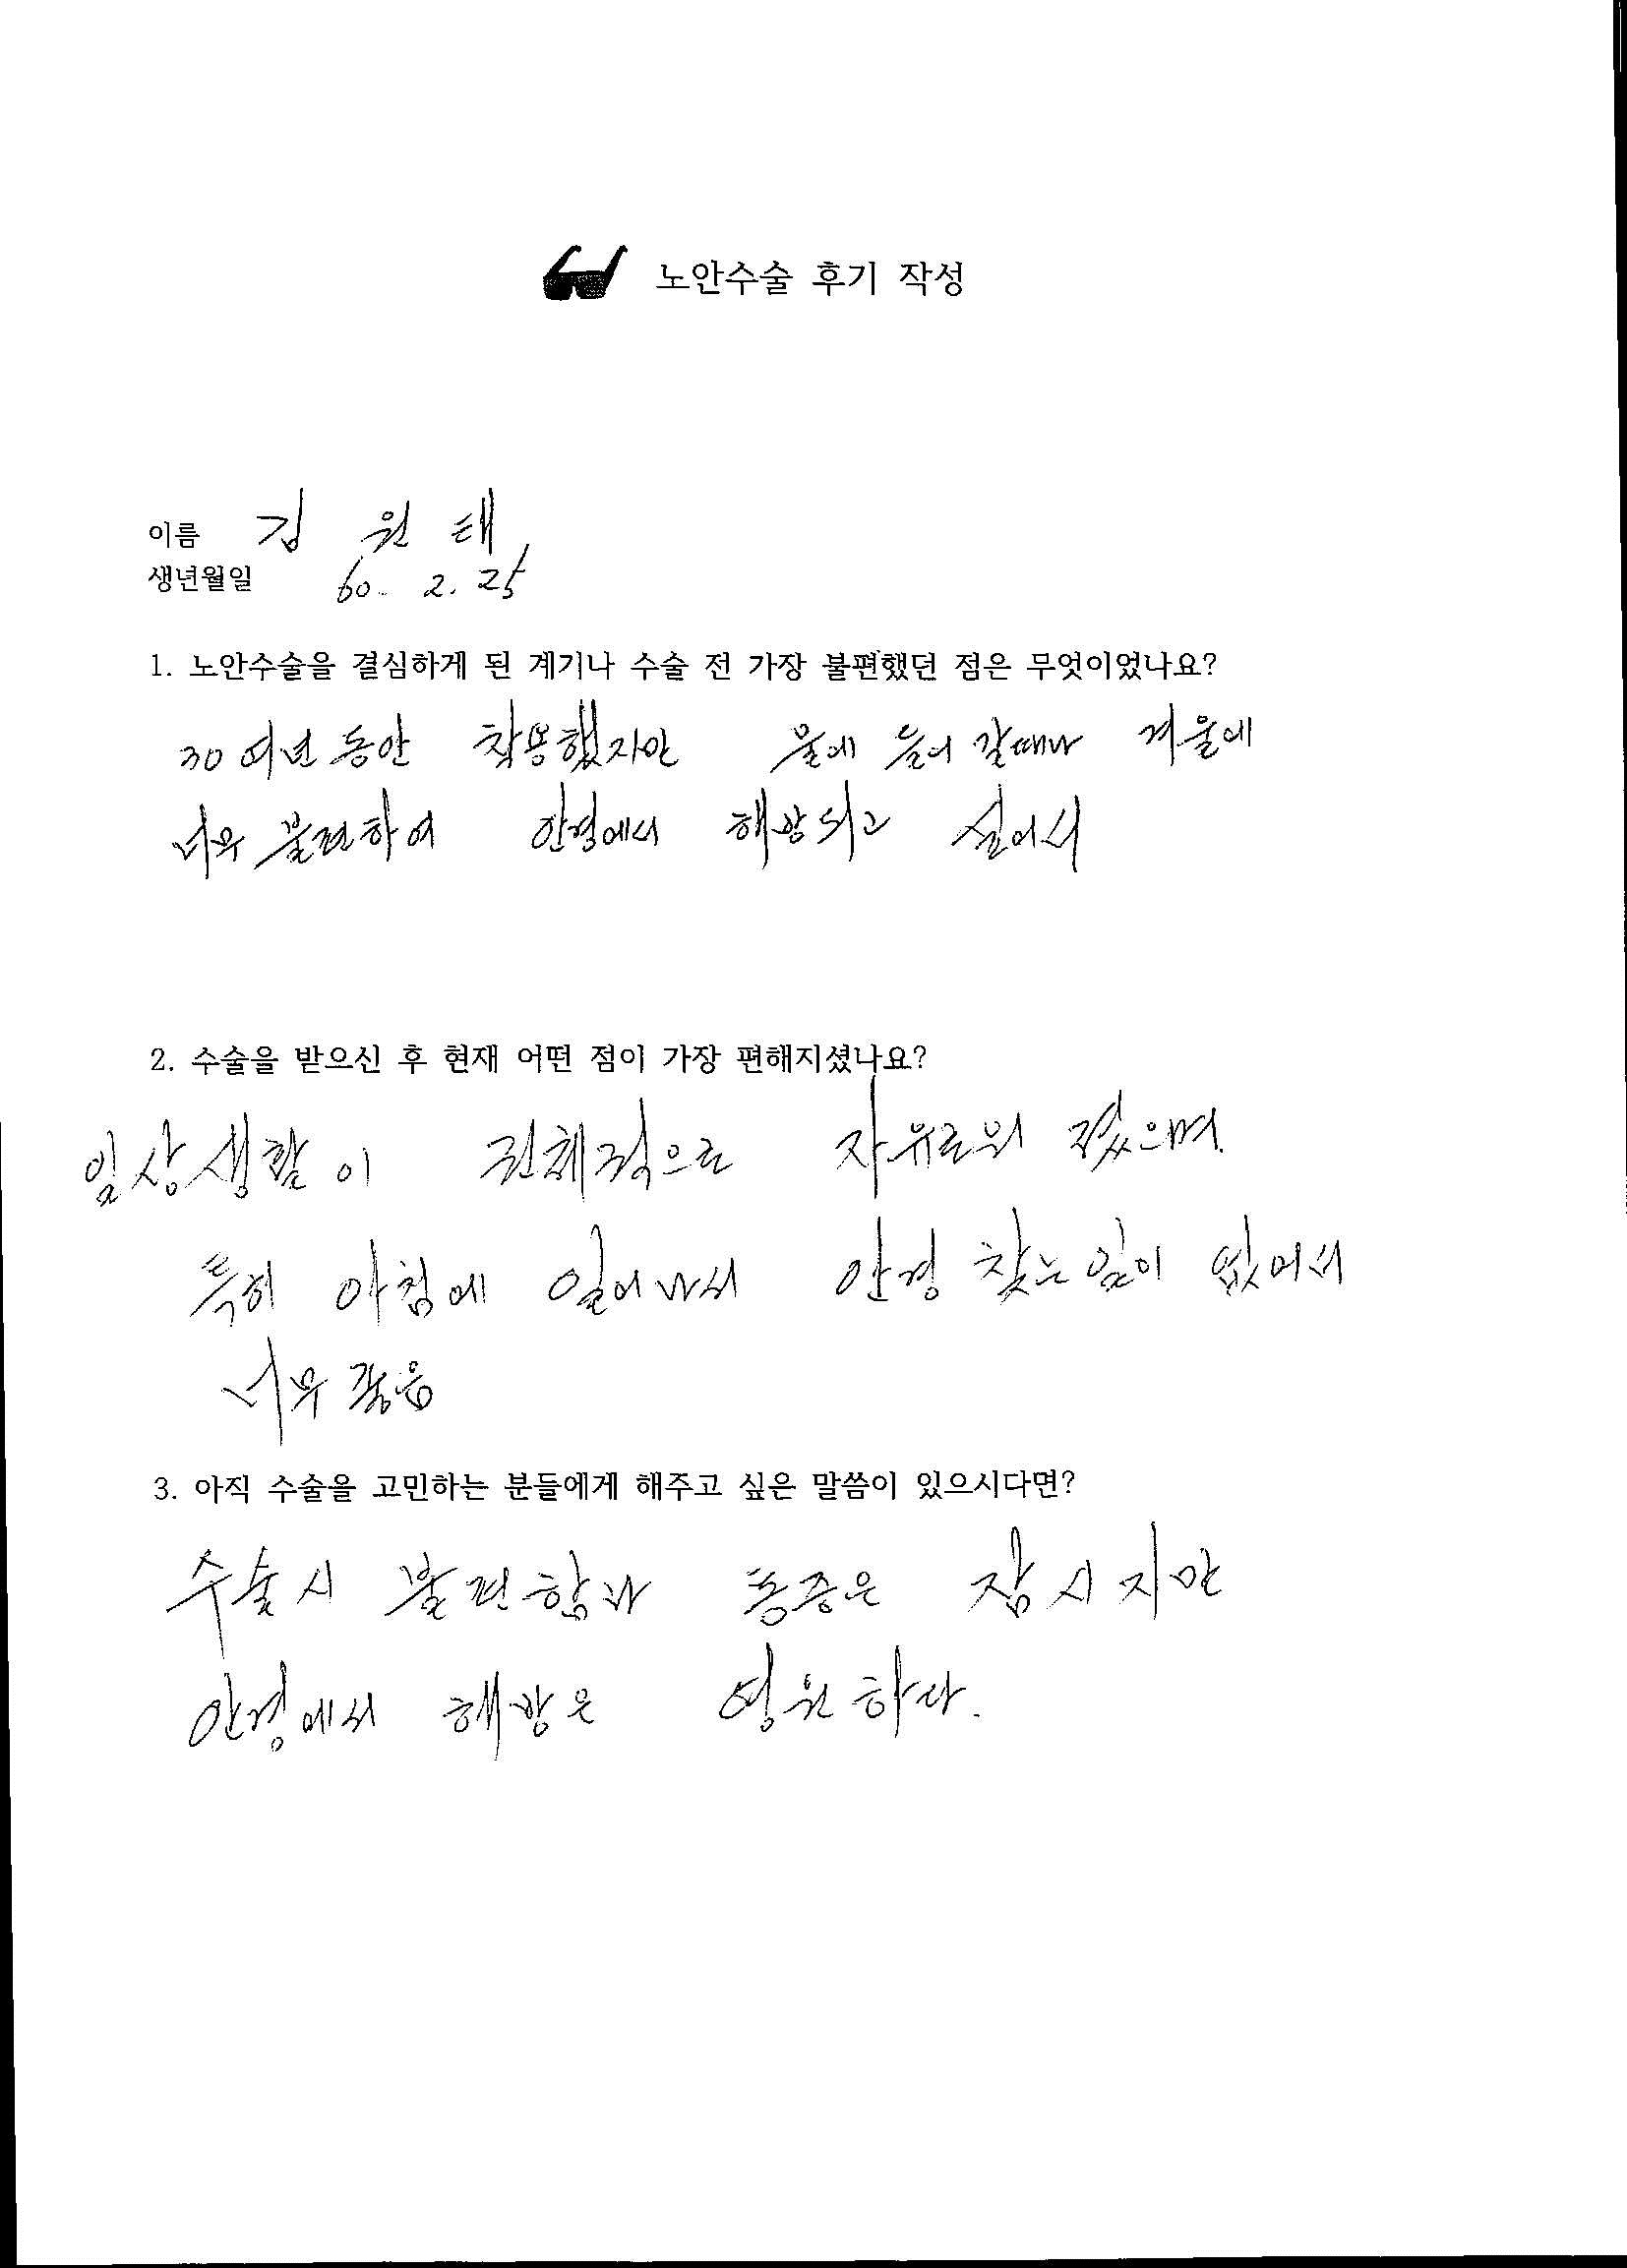 노안수술 후기 작성
이름 김 원 태
생년월일 60. 2. 25
1. 노안수술을 결심하게 된 계기나 수술 전 가장 불편했던 점은 무엇이었나요?
30여년 동안 착용했지만 물에 들어 갈때나 겨울에
너무 불편하여 안경에서 해방되고 싶어서
2. 수술을 받으신 후 현재 어떤 점이 가장 편해지셨나요?
일상생활이 전체적으로 자유로워 졌으며
특히 아침에 일어나서 안경 찾는일이 없어서
너무 좋음
3. 아직 수술을 고민하는 분들에게 해주고 싶은 말씀이 있으시다면?
수술시 불편함과 통증은 잠시지만
안경에서 해방은 영원하다.